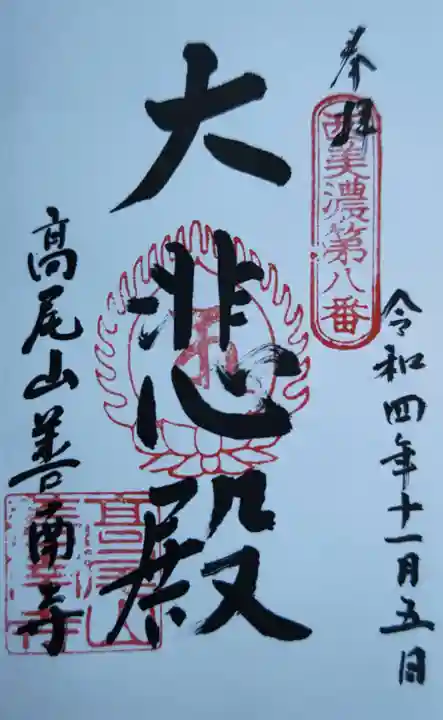 奉拝
西美濃第八番
令和四年十一月五日
大悲殿
高尾山善南寺